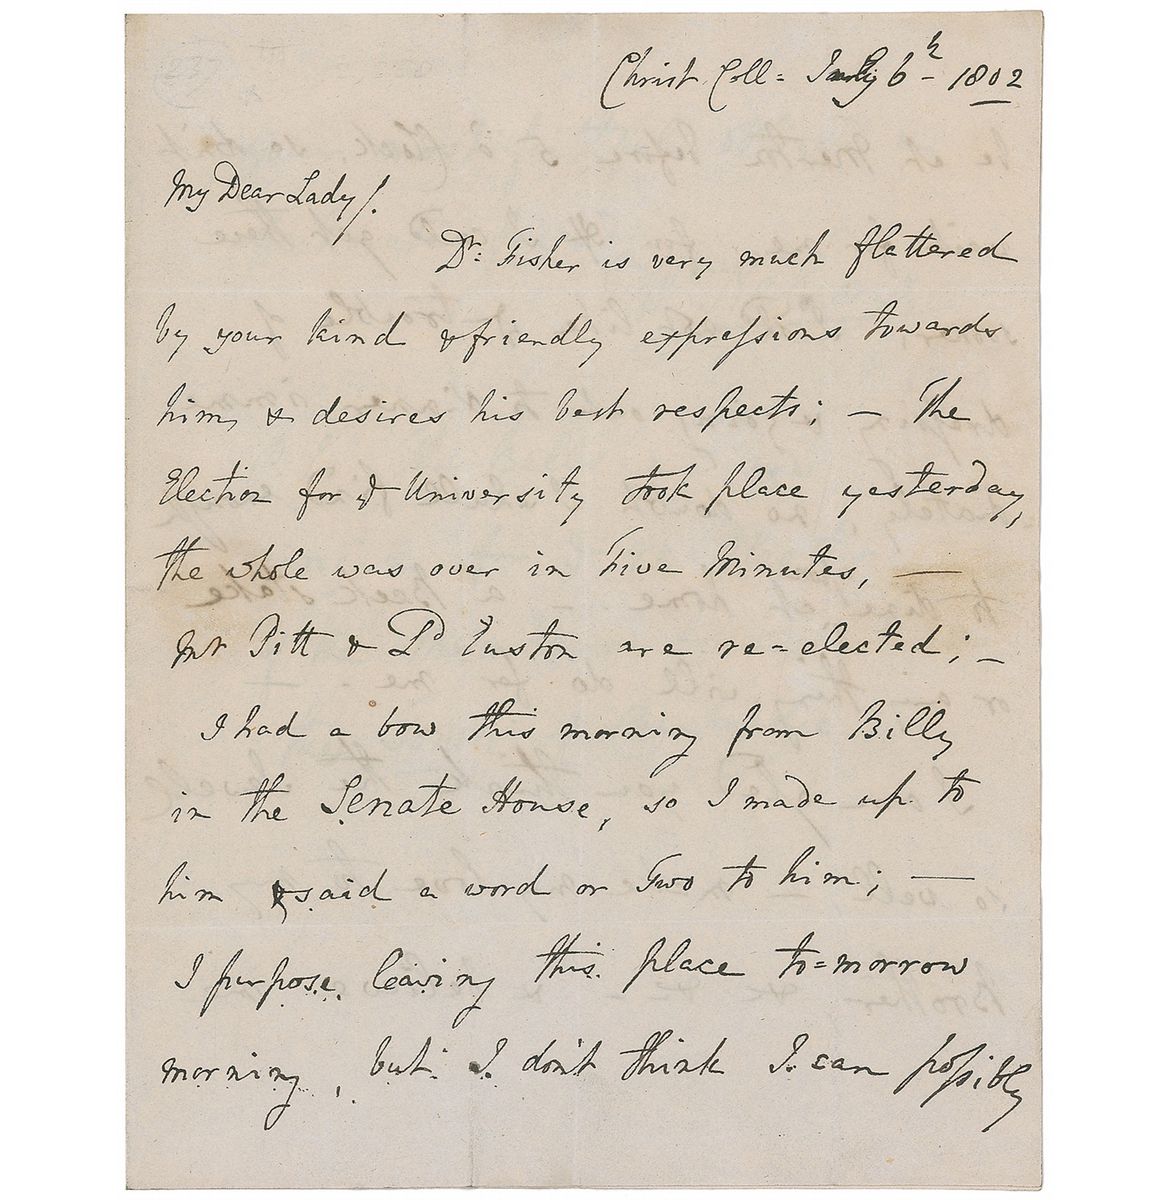 Christ Coll= July 6th 1802
My Dear Lady/.
Dr: Fisher is very much flattered
by your kind & friendly expreſsions towards
him, & desires his best respects; — The
Election for ye University took place yesterday,
the whole was over in Five Minutes, —
Mr Pitt & Ld Euston are re=elected; —
I had a bow this morning from Billy
in the Senate House, so I made up to
him & said a word or Two to him; —
I purpose leaving this place to=morrow
morning, but I don't think I can poſsibly